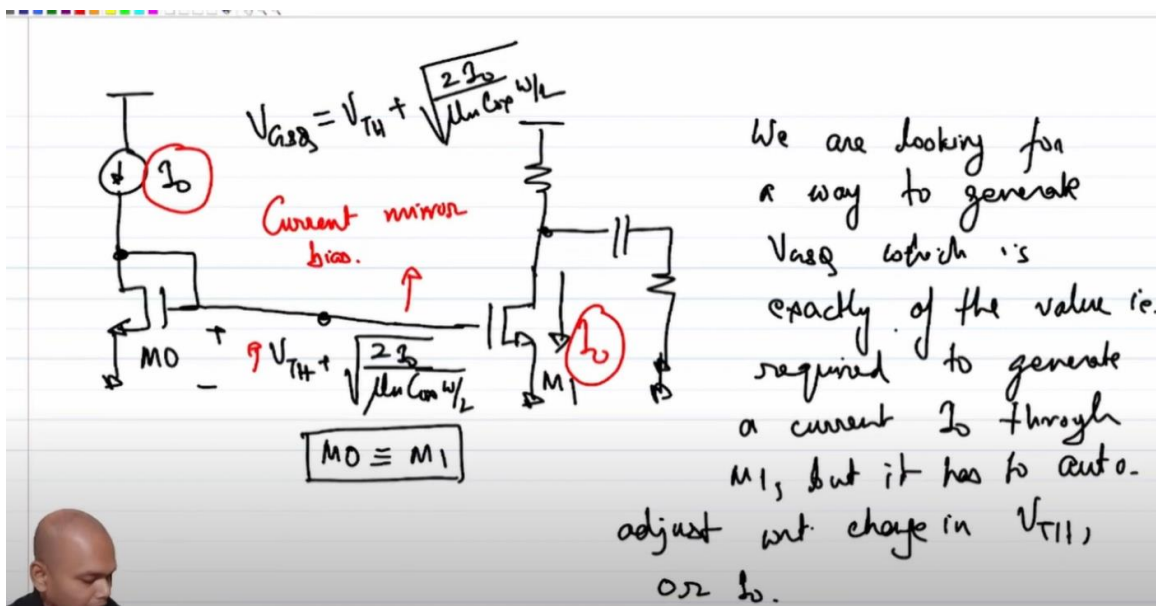 V_GSQ = V_TH + √(2I_0 / μn Cox W/L)
I_0
Current mirror
bias.
+
M0
-
V_TH + √(2I_0 / μn Cox W/L)
I_0
M1
M0 ≡ M1
We are looking for
a way to generate
V_GSQ which is
exactly of the value ie.
required to generate
a current I_0 through
M1, but it has to auto-
adjust wrt. change in V_TH,
or I_0.